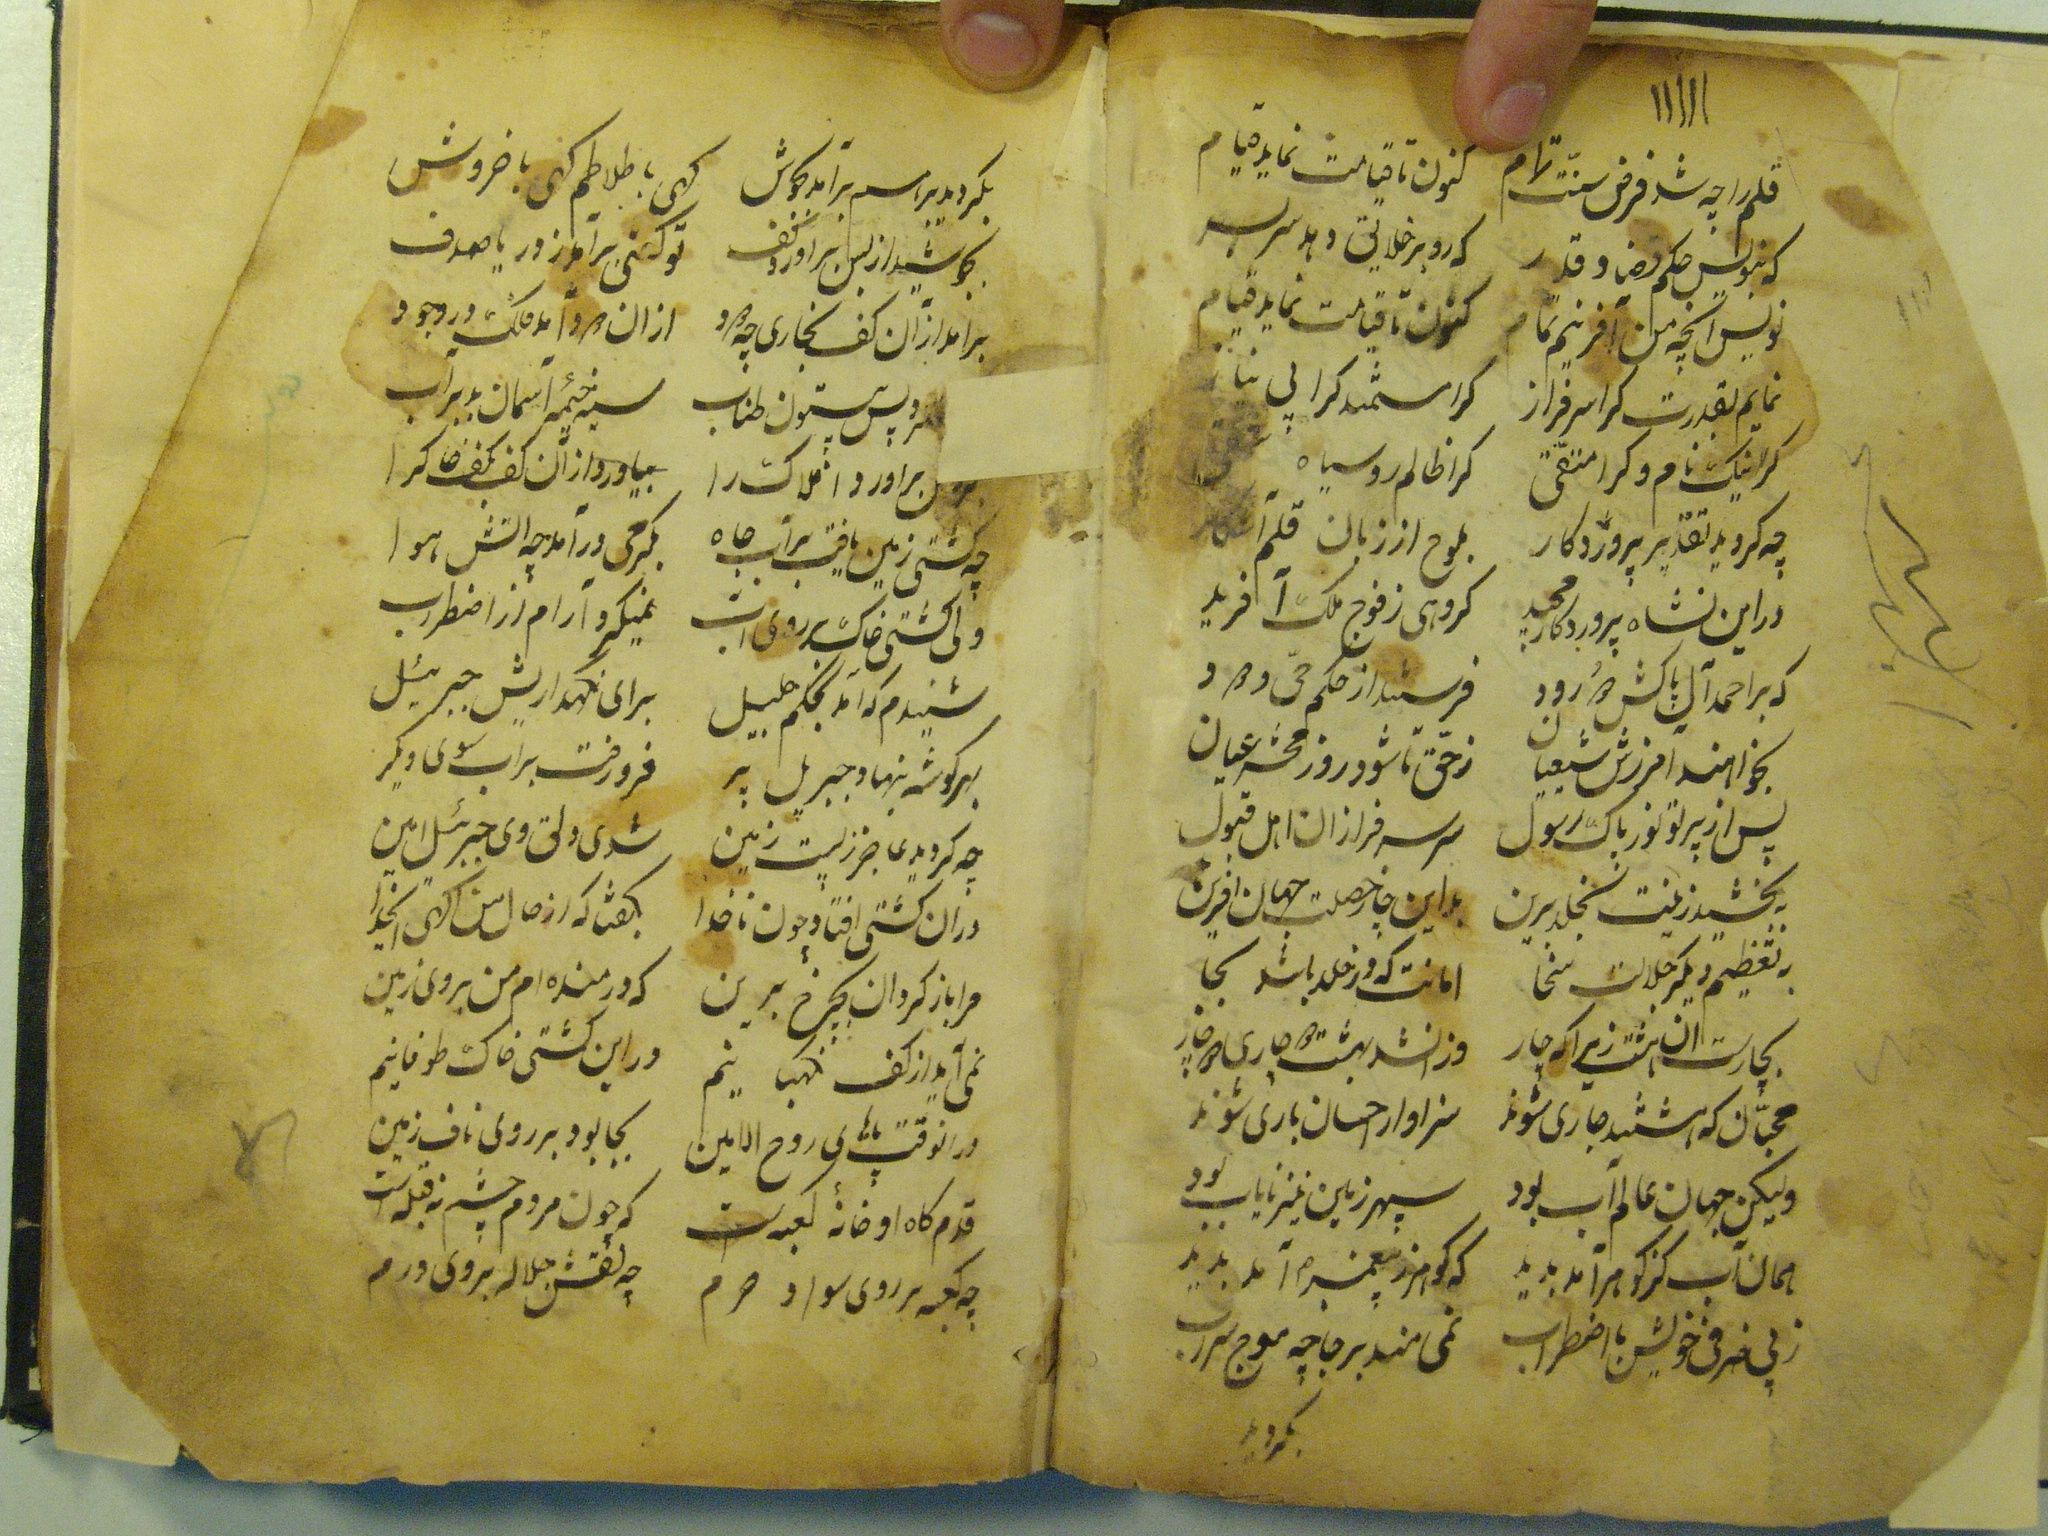 قلم را چه شد فرض سنت تمام کنون تا قیامت نماید قیام
که بنویس حکم قضا و قدر که رو بر خلایق دهد سر بسر
نویس آنچه من آفرینم تمام کنون تا قیامت نماید قیام
نمایم بقدرت کرا سرفراز کرا مستمند کرا بی نیاز
کرا نیک نام و کرا متقی کرا ظالم رو سیاه
چه کردید تقدیر پروردکار بلوح از زبان قلم آشکار
در این نشاه پروردکار مجید کروهی ز فوج ملک آفرید
که بر احمد آل پاکش درود فرستید از حکم حی ودود
بخواهند آمرزش شیعیان ز حق تا شود روز محشر عیان
پس از پرتو نور پاک رسول سر سرفرازان اهل قبول
ببخشید زینت بخلد برین بداین چار خصلت جهان آفرین
به تعظیم دیکر جلالت سخا امانت که در خلد باشد بجا
بچارست ان هشت زیرا که چار وزان شد بهشت
محبان که هشتند جاری شوند سزاوار احسان باری شوند
ولیکن جهان عالم آب بود سپهر زمین نیز نایاب بود
همان آب کز کوهر آمد پدید که کوهر ز پیغمبر آمد پدید
ز بی ظرفی خویش با اضطراب نمی ماند بر جا چه موج سراب
بکردید
بکردید برسم برآمد بجوش کهی با طلاطم کهی با خروش
بجوشید از بس برآورد کف تو کفتی برآمد ز دریا صدف
برآمد از آن کف بخاری چه دود از ان دود آمد فلک در وجود
پس بیستون طناب سیه خیمه آسمان زد بر آب
برآورد افلاک را بیاورد از آن کف بکف خاک را
چه کشتی زمین یافت بر آب جاه بکرمی درآمد چه آتش هوا
ولی کشتی خاک بر روی آب نمیکرد آرام از اضطراب
شنیدم که آمد بحکم جلیل برای نکهداریش جبرئیل
بهر کوشه بنهاد جبریل پر فرو رفت بر آب سوی دیکر
چه کردید عاجز ز لیت زمین شدی دلق وی جبرئیل امین
در ان کشتی افتاد چون ناخدا بکفتا که از حال من آکهی ایخدا
مرا باز کردان بچرخ برین که درمنده ام من بروی زمین
نمی آید از کف نکهبانیم در این کشتی خاک طوفانیم
در انوقت پای روح الامین بجا بود بر روی ناف زمین
قدم کاه او خانهٔ کعبه است که چون مردم چشم نه قبله است
چه کعبه بر روی سواد حرم چه نقش جلاله بروی درم